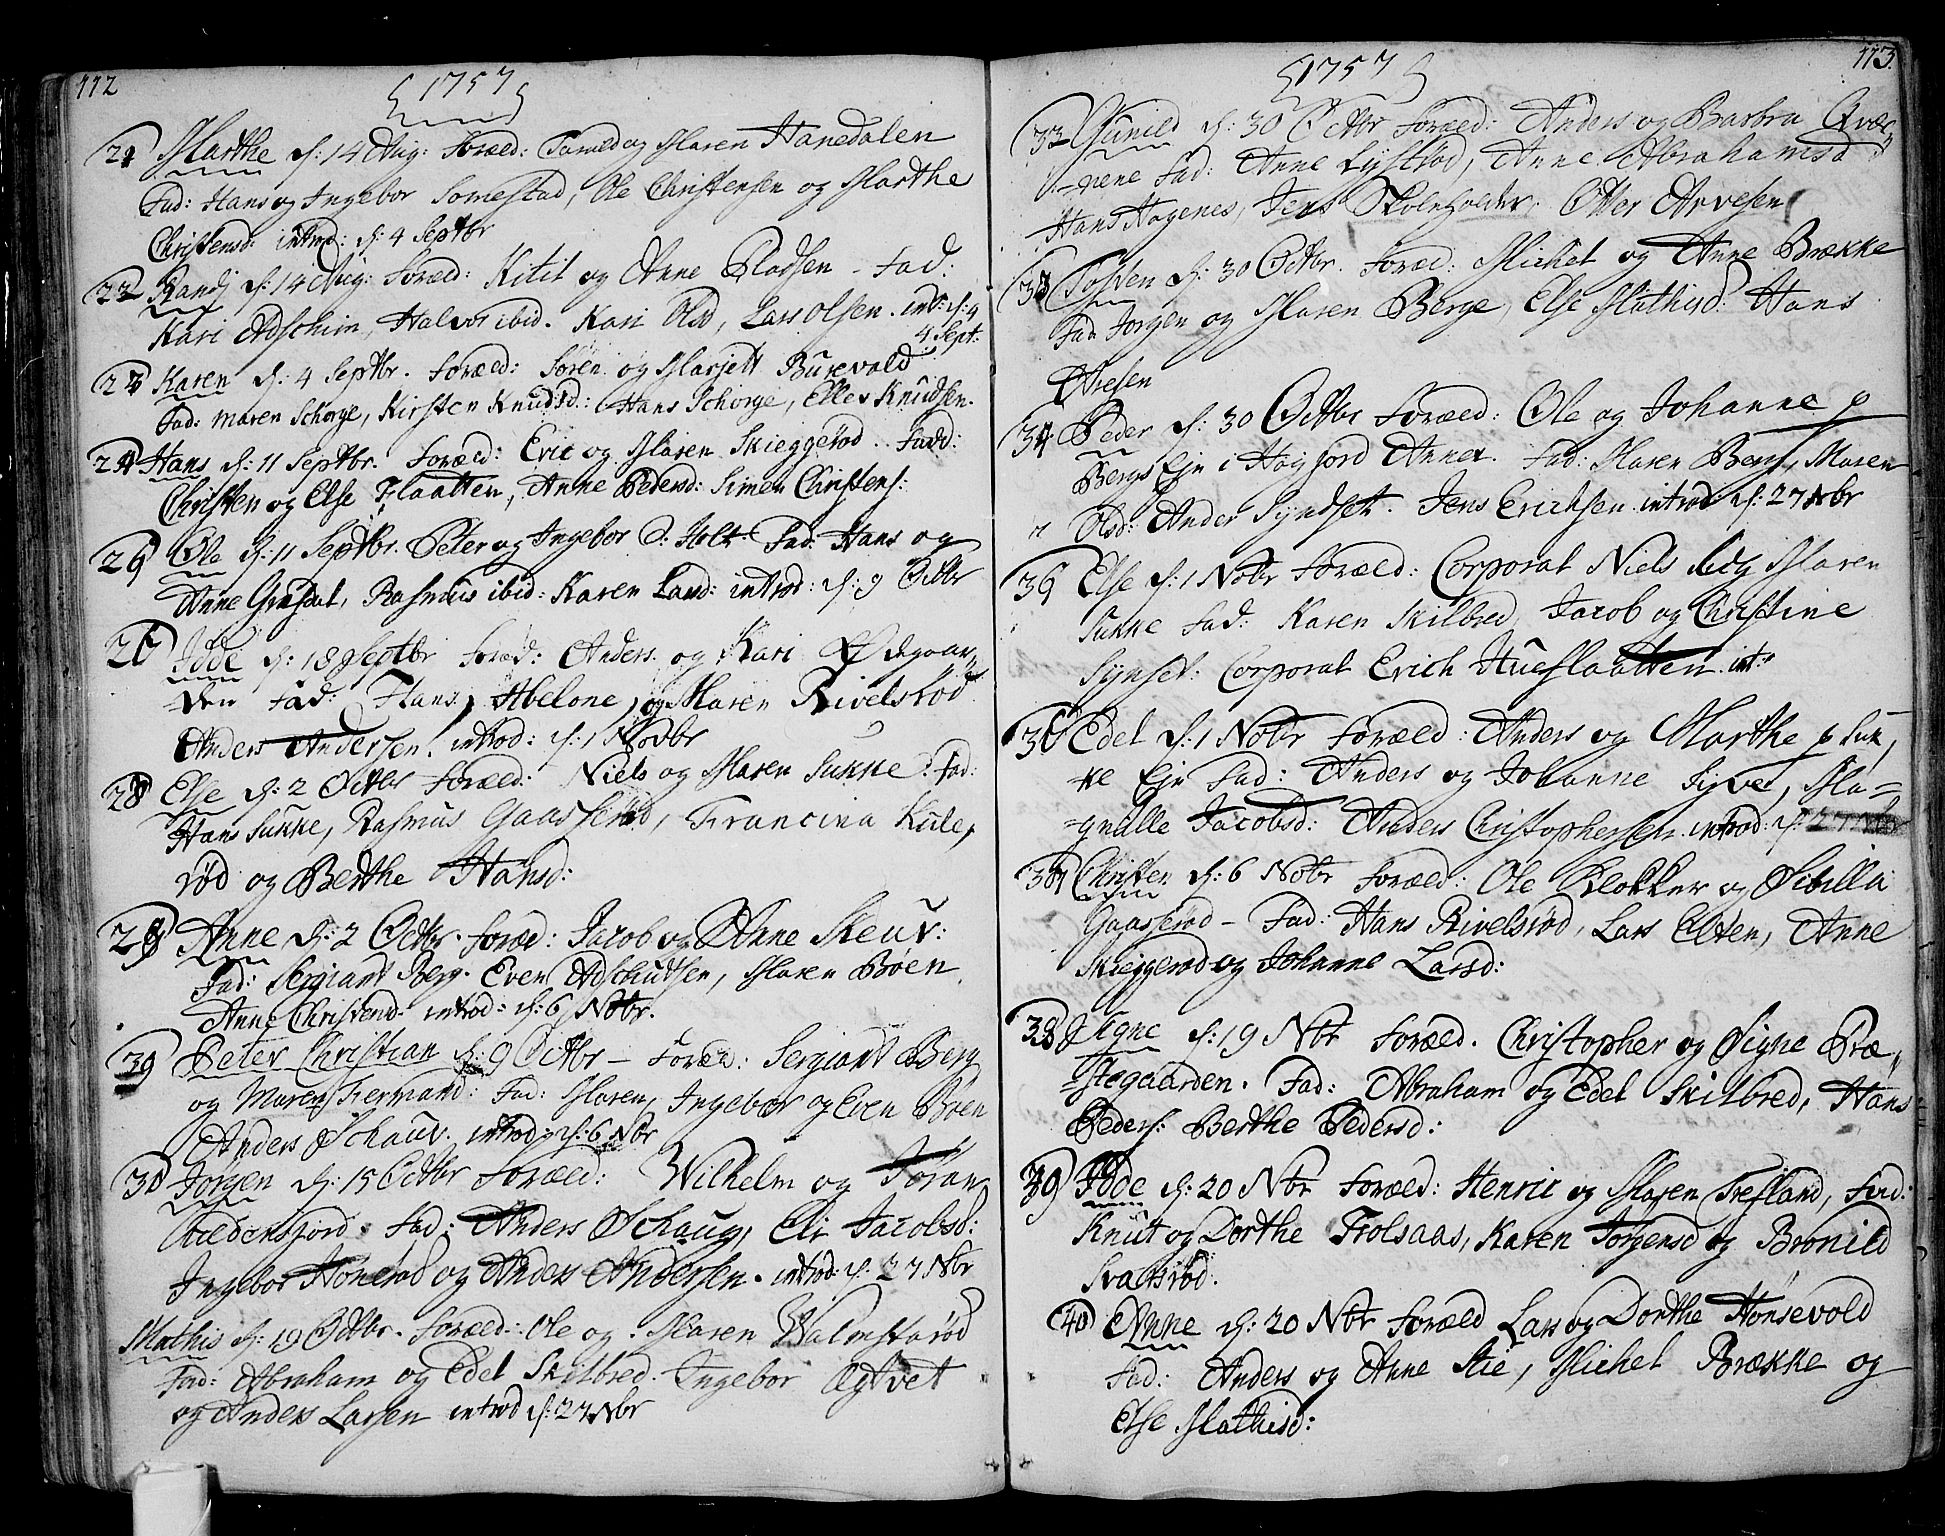 112
1757
21 Marthe d: 14 Aug: Foræld: Taral og Maren Hanedalen
Fad: Hans og Ingebor Somestad, Ole Christensen og Marthe
Christensd: introd: d: 4 Septbr
22 Randj d: 14 Aug: Foræld: Kitil og Anne Pladsen - Fad:
Kari Adschim, Halvor ibid. Kari Olsd, Lars Olsen. int: d: 4
4 Sept:
23 Karen d: 4 Septbr. Foræld: Søren og Marjett Burevald
Fad: Maren Schorge, Kirsten Knudsd: Hans Schorge, Elles Knudsen.
24 Hans d: 11 Septbr. Foræld: Eric og Maren Skieggerød. Fadd:
Christen og Else Flaatten, Anne Pedersd: Simen Christens:
25 Ole d: 11 Septbr. Peter og Ingebor Holt Fad: Hans og
Anne Grasdal, Rasmus ibid: Karen Land: introd: d: 9 Octbr
26 Idde d: 18 Septbr Foræld: Anders og Kari Ødegaar,,
den Fad: Hans, Abelone, og Maren Rivelsrød
Anders Andersen. introd: d: 1 Novbr
28 Else d: 2 Octbr Foræld: Niels og Maren Sukke: Fad:
Hans Sukke, Rasmus Gaasserød, Francina Kule,
rød og Berthe Hansd:
28 Anne d: 2 Octbr. Foræld: Jacob og Anne Skeuv:
Fad: Sergiant Berg. Even Adschudsen, Maren Bøen
Anne Christensd. introd: d: 6 Nobr.
30 Peter Christian d: 9 Octbr - Foræld: Sergiant Berg
og Maren Fermand: Fad: Maren, Ingebor og Even Bøen
Anders Schauv. introd: d: 6 Nbr
30 Jørgen d: 15 Octbr Foræld: Wilhelm og Jøran
Fad: Anders Schaug, Eli Jacobsd:
Ingebor Hønerød og Anders Andersen. introd: d: 27 Nbr
Mathis d: 19 Octbr. Foræld: Ole og Maren Walmstarød
Fad: Abraham og Edel Skilbred. Ingebor Ægtvet
og Anders Larsen introd d: 27 Nbr
113
1757
32 Gunild d: 30 Octbr Foræld: Anders og Barbra Qvær,,
nene Fad: Anne Lystrød, Anne Abrahamsd
Hans Hagenes, Jens Skoleholder. Otter Arvesen
33 Tosten d: 30 Octbr. Foræld: Michel og Anne Brække
Fad Jørgen og Maren Berge, Else Mathisd: Hans
Aresen
34 Peder d: 30 Octbr Foræld: Ole og Johanne p
Bergs Ejn i Høyjord Annex. Fad: Maren Berg, Maren
Olsd: Ander Syndset. Jens Ericksen introd d: 27 Nbr
36 Else d: 1 Nobr Foræld: Corporal Niels og Maren
Sukke Fad: Karen Skilbred, Jacob og Christine
Synset: Corporal Erich Hueslaatten int:
36 Edel d: 1 Nobr Foræld: Anders og Marthe p Suk,
ke Ejn Fad: Anders og Johanne Syver, Ma=
gnille Jacobsd: Anders Christophersen introd: d: 27 Nbr
37 Christen d: 6 Nobr Foræld: Ole Klokker og Sibilla
Gaasserød - Fad: Hans Rivelsrød, Lars Elten, Anne
Skieggerød og Johanne Larsd:
38 Signe d: 19 Nbr Foræld. Christopher og Signe Præ,,
stegaarden. Fad: Abraham og Edel Skilbred, Hans
Peders: Berthe Pedersd:
39 Idde d: 20 Nbr Foræld: Henric og Maren Trefland, Fad:
Knut og Dorthe Trolsaas, Karen Jørgensd og Bronild
Svartsrød.
40 Anne d: 20 Nbr Foræld Lars og Dorthe Hønsevold
Fad: Anders og Anne Stie, Michel Brække og
Else Mathisd: